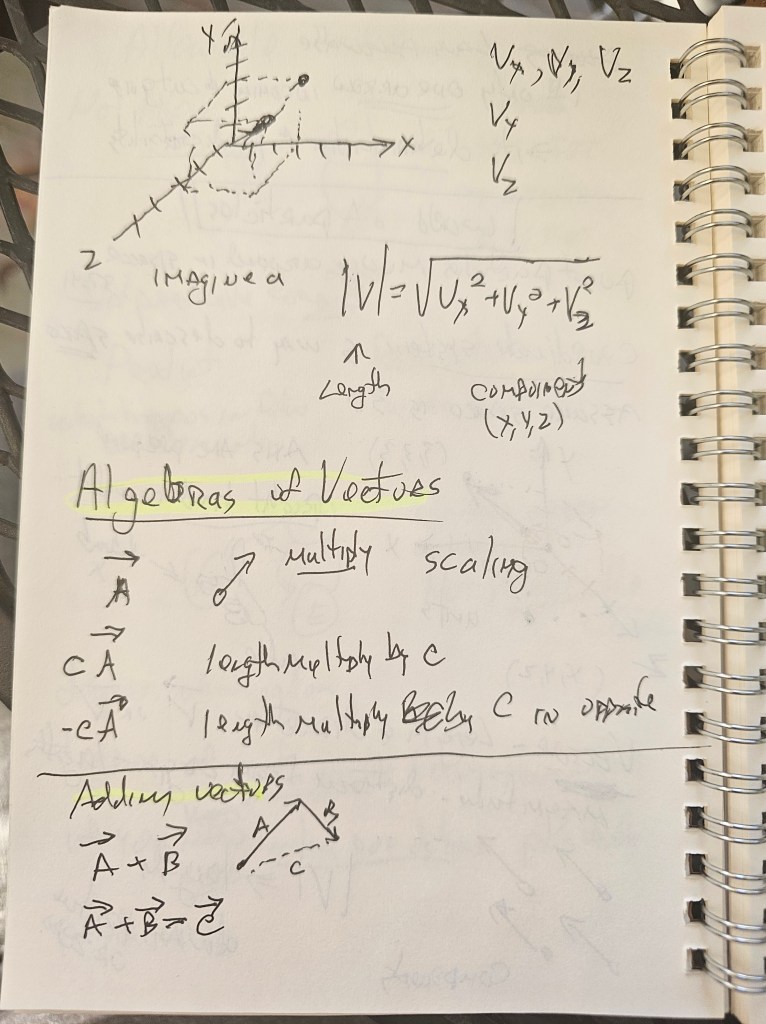 Y
X
Z
Vx, Vy, Vz
Vy
Vz
IMAGINE a
|V| = √Vx² + Vy² + Vz²
↑
Length
COMPONENT
(X, Y, Z)
Algebras of Vectors
A⃗ Multiply scaling
cA⃗ length multiply by C
-cA⃗ length multiply by C in opposite
Adding vectors
A⃗ + B⃗
A B
C
A⃗ + B⃗ = C⃗